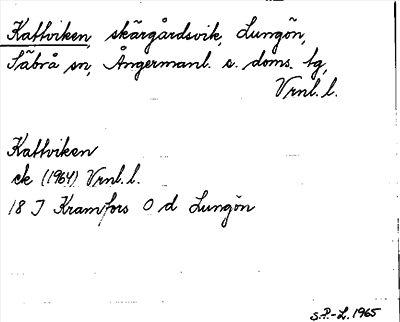 Kattviken, skärgårdsvik, Lungön,
Säbrå sn, Ångermanl. s. doms. tg,
Vrnl. l.
Kattviken
ek (1964) Vrnl. l.
18 J Kramfors O d Lungön
S.P.-L. 1965